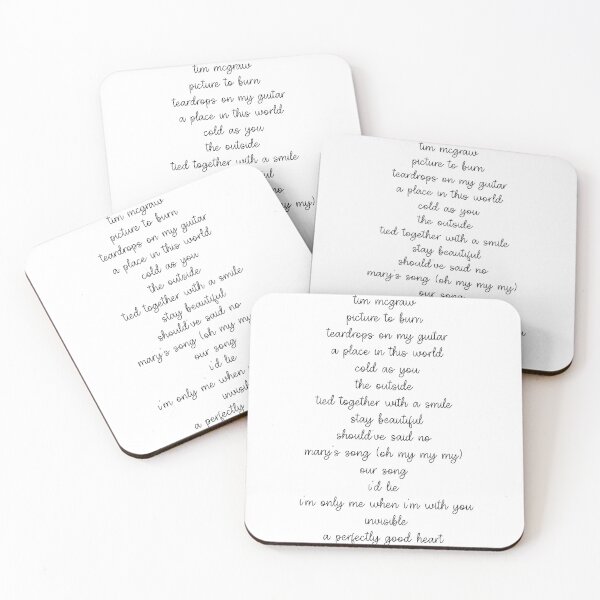 tim mcgraw
picture to burn
teardrops on my guitar
a place in this world
cold as you
the outside
tied together with a smile
no
my my)
tim mcgraw
picture to burn
teardrops on my guitar
a place in this world
cold as you
the outside
tied together with a smile
stay beautiful
should've said no
mary's song (oh my my my)
our song
tim mcgraw
picture to burn
teardrops on my guitar
a place in this world
cold as you
the outside
tied together with a smile
stay beautiful
should've said no
mary's song (oh my my my)
our song
i'd lie
i'm only me when i'm
invisible
a perfectly
tim mcgraw
picture to burn
teardrops on my guitar
a place in this world
cold as you
the outside
tied together with a smile
stay beautiful
should've said no
mary's song (oh my my my)
our song
i'd lie
i'm only me when i'm with you
invisible
a perfectly good heart